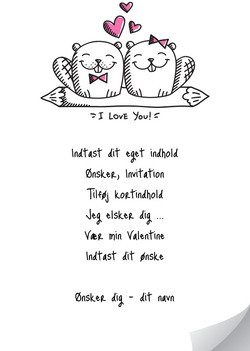 I LOVE YOU!
Indtast dit eget indhold
Ønsker, Invitation
Tilføj kortindhold
Jeg elsker dig ...
Vær min Valentine
Indtast dit ønske
Ønsker dig - dit navn